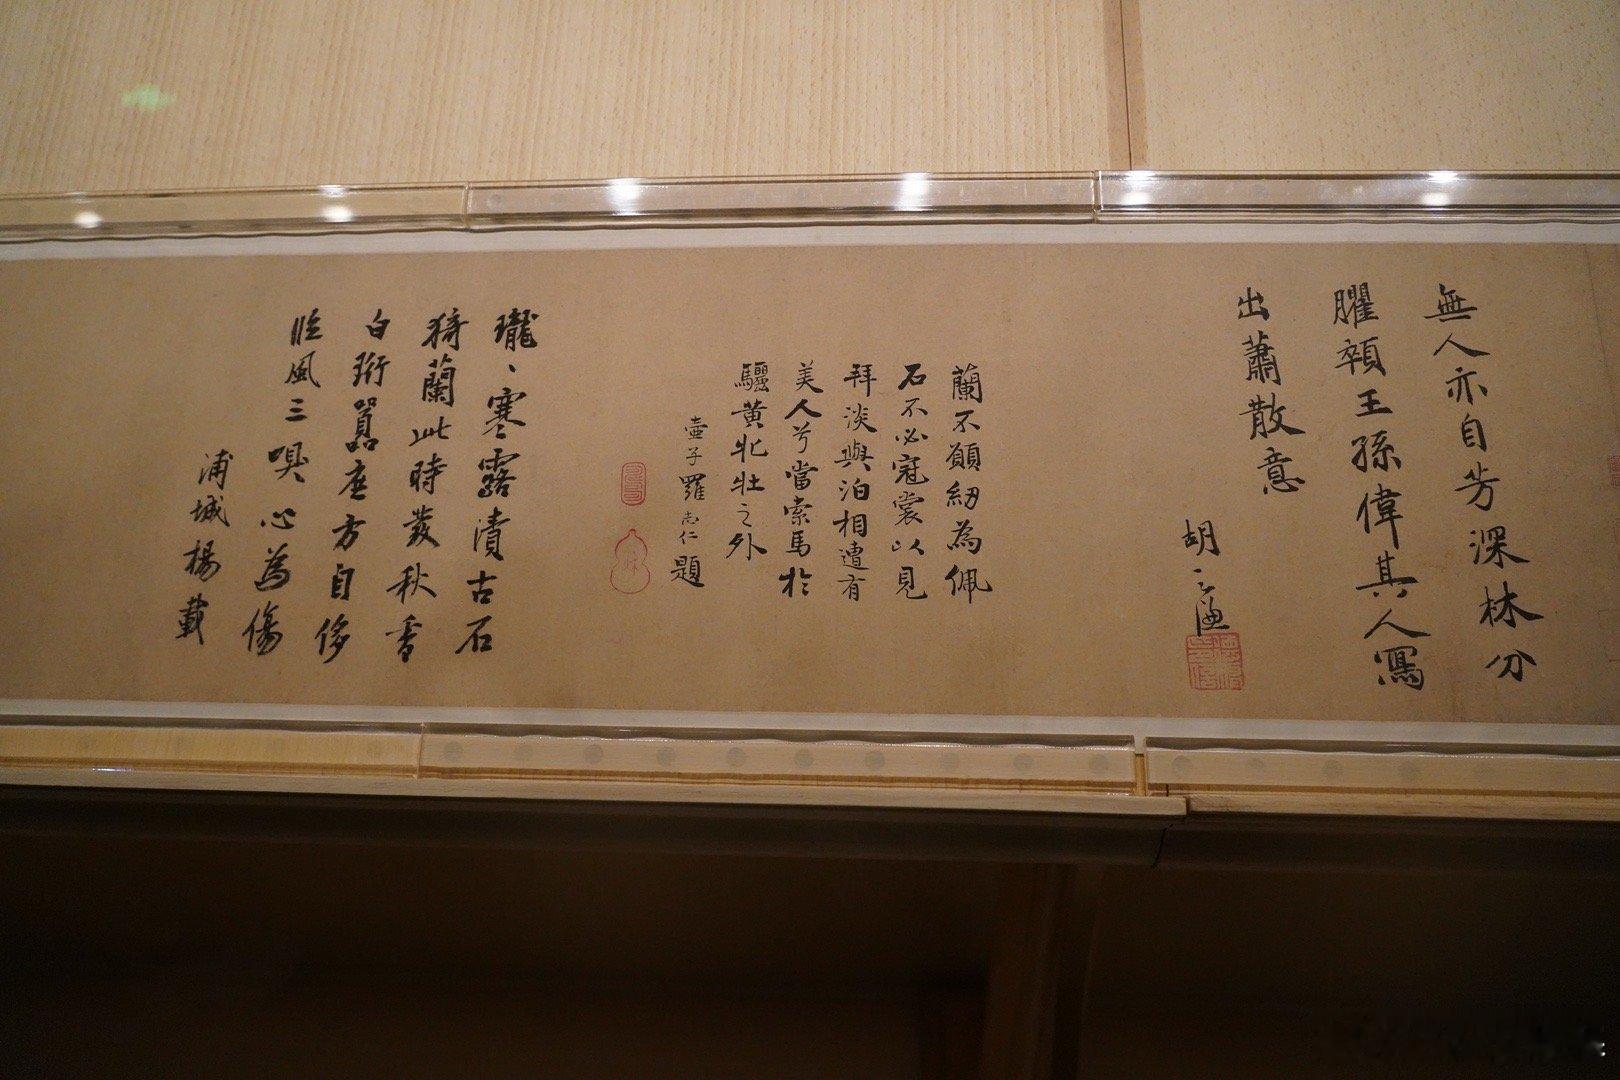 無人亦自芳深林分
臞顇王孫偉其人寫
出蕭散意
胡
蘭不願紉為佩
石不必冠裳以見
拜淡與泊相遭有
美人兮當索馬於
驪黃牝牡之外
壺子羅志仁題
瓏、寒露漬古石
猗蘭此時發秋香
白珩囂塵方自侈
臨風三嗅心為傷
浦城楊載